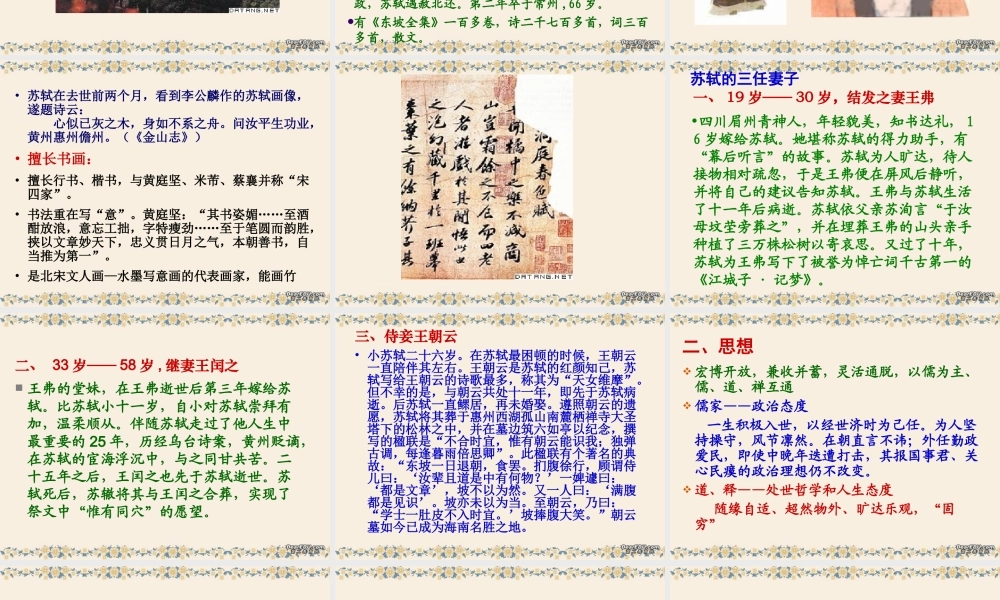 DATANG.NET
政，苏轼遇赦北还。第二年卒于常州 ,66 岁。
•有《东坡全集》一百多卷，诗二千七百多首，词三百
多首，散文。
• 苏轼在去世前两个月，看到李公麟作的苏轼画像，
遂题诗云：
心似已灰之木，身如不系之舟。问汝平生功业，
黄州惠州儋州。（《金山志》）
• 擅长书画：
• 擅长行书、楷书，与黄庭坚、米芾、蔡襄并称“宋
四家”。
• 书法重在写“意”。黄庭坚：“其书姿媚……至酒
酣放浪，意忘工拙，字特瘦劲……至于笔圆而韵胜，
挟以文章妙天下，忠义贯日月之气，本朝善书，自
当推为第一”。
• 是北宋文人画—水墨写意画的代表画家，能画竹
洞庭春色赋
DATANG.NET
苏轼的三任妻子
一、 19 岁—— 30 岁，结发之妻王弗
•四川眉州青神人，年轻貌美，知书达礼， 1
6 岁嫁给苏轼。她堪称苏轼的得力助手，有
“幕后听言”的故事。苏轼为人旷达，待人
接物相对疏忽，于是王弗便在屏风后静听，
并将自己的建议告知苏轼。王弗与苏轼生活
了十一年后病逝。苏轼依父亲苏洵言“于汝
母坟茔旁葬之”，并在埋葬王弗的山头亲手
种植了三万株松树以寄哀思。又过了十年，
苏轼为王弗写下了被誉为悼亡词千古第一的
《江城子 · 记梦》。
二、 33 岁—— 58 岁 , 继妻王闰之
王弗的堂妹，在王弗逝世后第三年嫁给苏
轼。比苏轼小十一岁，自小对苏轼崇拜有
加，温柔顺从。伴随苏轼走过了他人生中
最重要的 25 年，历经乌台诗案，黄州贬谪，
在苏轼的宦海浮沉中，与之同甘共苦。二
十五年之后，王闰之也先于苏轼逝世。苏
轼死后，苏辙将其与王闰之合葬，实现了
祭文中“惟有同穴”的愿望。
三、侍妾王朝云
• 小苏轼二十六岁。在苏轼最困顿的时候，王朝云
一直陪伴其左右。王朝云是苏轼的红颜知己，苏
轼写给王朝云的诗歌最多，称其为“天女维摩”。
但不幸的是，与朝云共处十一年，即先于苏轼病
逝。后苏轼一直鳏居，再未婚娶。遵照朝云的遗
愿，苏轼将其葬于惠州西湖孤山南麓栖禅寺大圣
塔下的松林之中，并在墓边筑六如亭以纪念，撰
写的楹联是“不合时宜，惟有朝云能识我；独弹
古调，每逢暮雨倍思卿”。此楹联有个著名的典
故：“东坡一日退朝，食罢。扪腹徐行，顾谓侍
儿曰：‘汝辈且道是中有何物？’一婢遽曰：
‘都是文章’，坡不以为然。又一人曰：‘满腹
都是见识’。坡亦未以为当。至朝云，乃曰：
“学士一肚皮不入时宜。’坡捧腹大笑。”朝云
墓如今已成为海南名胜之地。
二、思想
宏博开放，兼收并蓄，灵活通脱，以儒为主、
儒、道、禅互通
儒家——政治态度
一生积极入世，以经世济时为己任。为人坚
持操守，风节凛然。在朝直言不讳；外任勤政
爱民，即使中晚年迭遭打击，其报国事君、关
心民瘼的政治理想仍不改变。
道、释——处世哲学和人生态度
随缘自适、超然物外、旷达乐观，“固
穷”